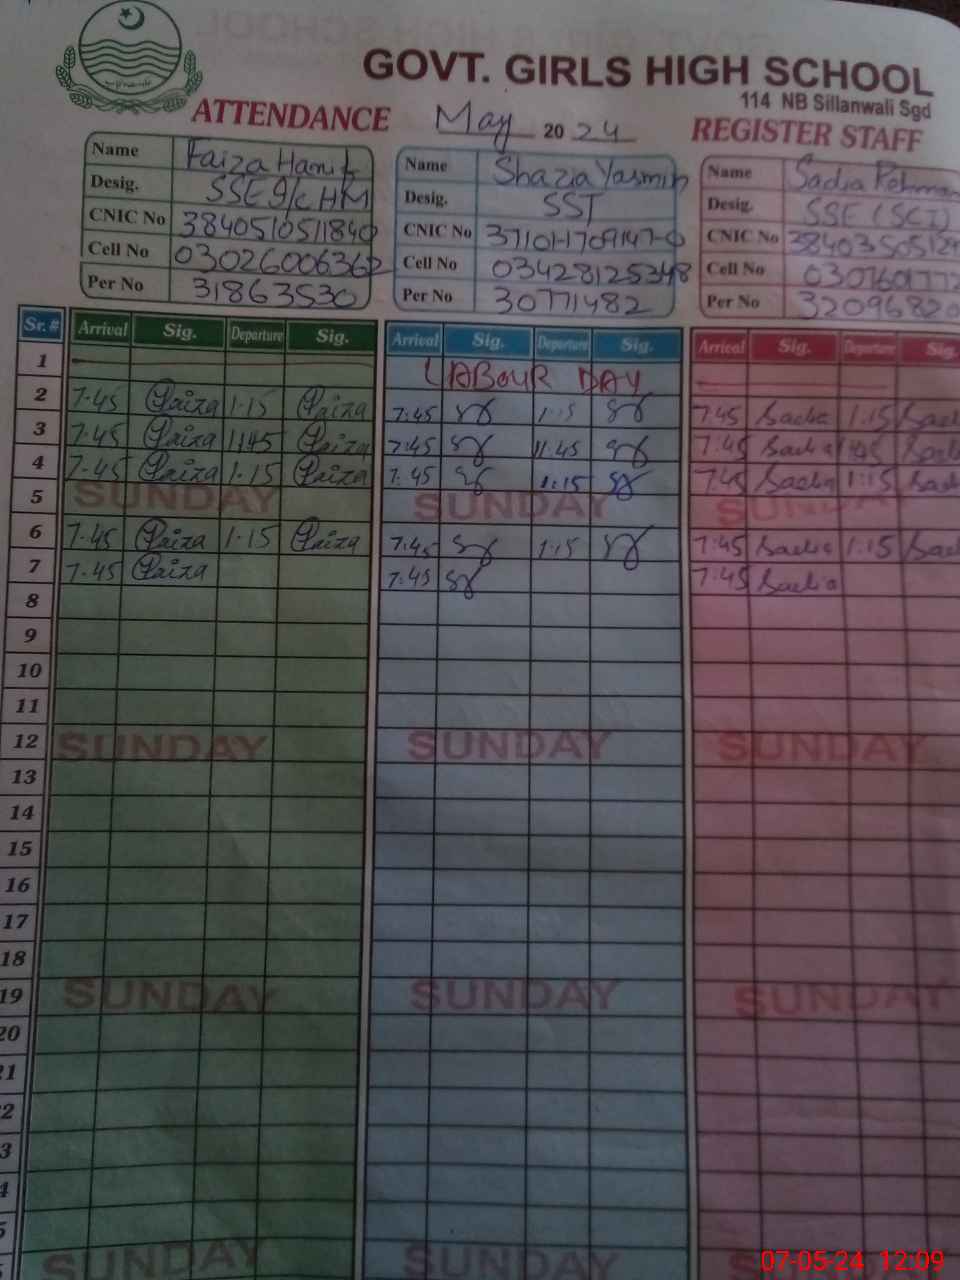 GOVT. GIRLS HIGH SCHOOL
114 NB Sillanwali Sgd
ATTENDANCE May 2024 REGISTER STAFF
Name Faiza Hanif Name Shazia Yasmin Name Sadia Rehman
Desig. SSE I/C HM Desig. SST Desig. SSE (SCI)
CNIC No 3840510511840 CNIC No 37101-1709147-0 CNIC No
Cell No 03026006362 Cell No 03428125348 Cell No
Per No 31863530 Per No 30771482 Per No 32096820
Sr. # Arrival Sig. Departure Sig. Arrival Sig. Departure Sig. Arrival Sig. Departure Sig.
1 LABOUR DAY
2 7.45 Faiza 1.15 Faiza 7:45 1:15 7:45 Sadia 1:15
3 7.45 Faiza 11.45 Faiza 7:45 11.45 7:45 Sadia
4 7.45 Faiza 1.15 Faiza 7:45 1:15 7:45 Sadia 1:15
5 SUNDAY SUNDAY SUNDAY
6 7.45 Faiza 1.15 Faiza 7:45 1:15 7:45 Sadia 1:15
7 7.45 Faiza 7:45 7:45 Sadia
8
9
10
11
12 SUNDAY SUNDAY SUNDAY
13
14
15
16
17
18
19 SUNDAY SUNDAY SUNDAY
20
21
22
23
24
25
SUNDAY SUNDAY SUNDAY
07-05-24 12:09